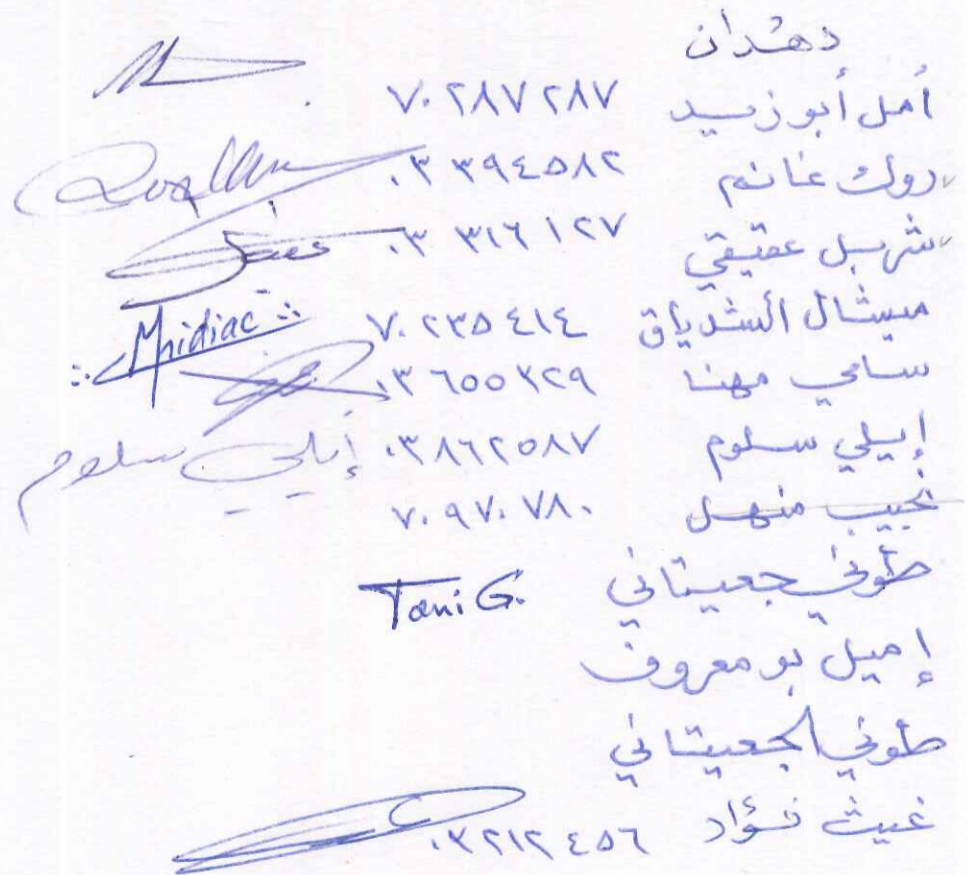 دهدان
أمل أبو زيد ٧٠ ٢٨٧ ٢٨٧
روك غانم ٠٣ ٣٩٤٥٨٢
شربل عقيقي ٠٣ ٣١٦ ١٢٧
ميشال الشدياق ٧٠ ٢٣٥ ٤١٤ Mhidiac
سامي مهنا ٠٣ ٦٥٥ ٣٢٩
إيلي سلوم ٠٣ ٨٦٢٥٨٧ إيلي سلوم
نجيب منهل ٧٠ ٩٧٠ ٧٨٠
طوني جعيتاني Toni G.
إميل بو معروف
طوني الجعيتاني
غيث فؤاد ٠٣ ٢١٢ ٤٥٦